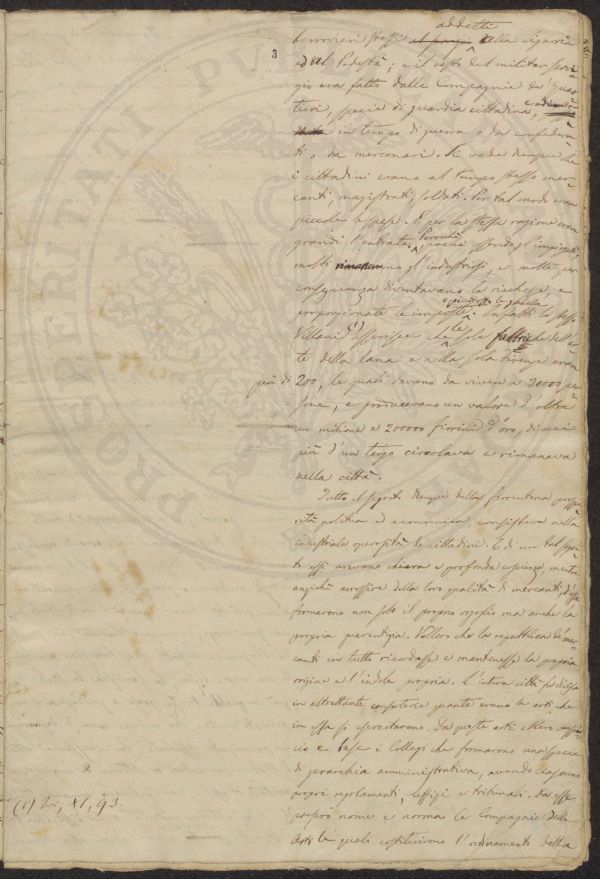 addetti
berrovieri stessi alla Signoria
3
ed al Podestà; e il resto del militar servi-
gio era fatto dalle Compagnie de' Quar-
tieri, specie di guardia cittadina, e
in tempo di guerra o da confedera-
ti o da mercenari. Si vede dunque che
i cittadini erano al tempo stesso mer-
canti, magistrati, soldati. Per tal modo eran
piccole le spese. E per la stessa ragione eran
grandi l'entrate. Perocché, pochi essendo gl'impiegati,
molti eran gl'industriosi, e molte per
conseguenza diventavano le ricchezze, e
proporzionate le imposte
o piuttosto le gabelle. Infatti lo stesso
Villani (1) asserisce che le sole fabbriche dell'ar-
te della lana e nella sola Firenze eran
più di 200, le quali davano da vivere a 30000 per-
sone, e producevano un valore d'oltre
un milione e 200000 fiorini d'oro, di cui
più d'un terzo circolava e rimaneva
nella città.
Tutto il segreto dunque della fiorentina prospe-
rità politica ed economica, consisteva nella
industriale operosità de' cittadini. E di un tal segre-
to essi avevano chiara e profonda coscienza, mentre
anziché arrossire della loro qualità di mercanti, d'essa
formarono non solo il proprio orgoglio ma anche la
propria guarentigia. Vollero che la repubblica de' mer-
canti in tutto ricordasse e mantenesse la propria
origine e l'indole propria. L'intera città fu divisa
in altrettante consorterie quante erano le arti che
in essa si esercitavano. Da queste arti ebbero
e base i Collegi che formarono una specie
di gerarchia amministrativa, avendo ciascuno
propri regolamenti, uffizi e tribunali. Da esse
presero nome e norma le Compagnie delle
Arti le quali costituirono l'ordinamento della
(1) Ivi, XI, 93.
PROSPERITATI PVBLICAE